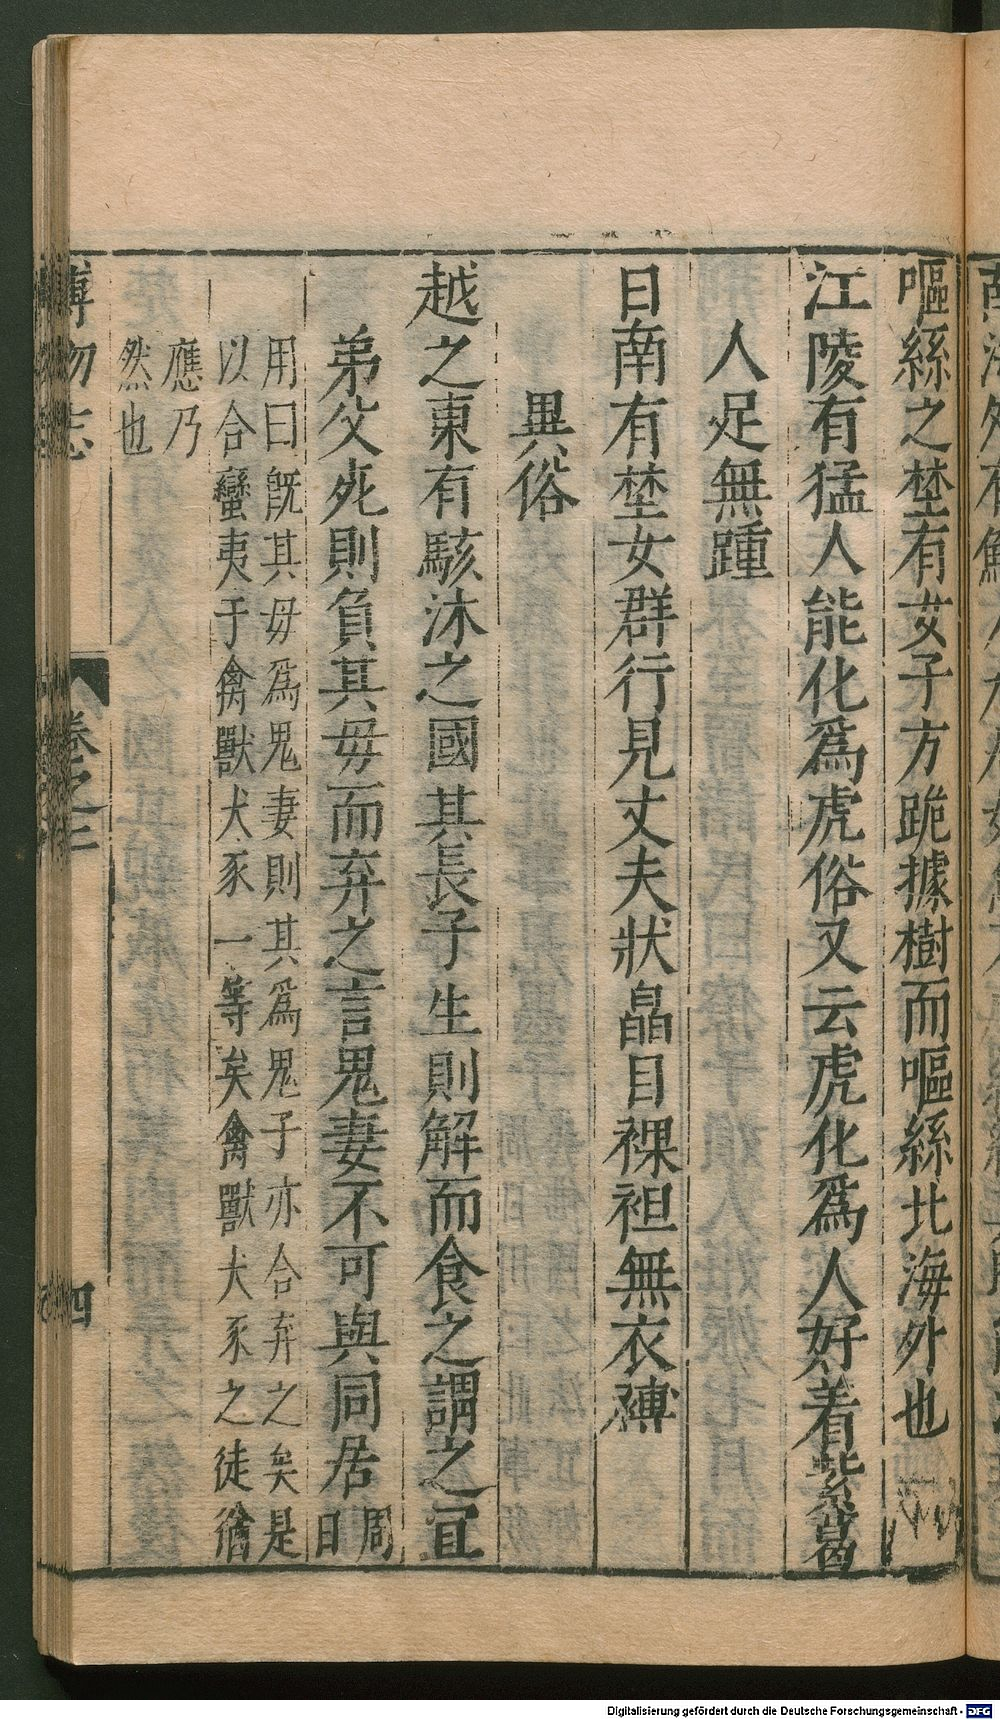 嘔絲之埜有女子方跪據樹而嘔絲北海外也
江陵有猛人能化爲虎俗又云虎化爲人好着紫葛
人足無踵
日南有埜女群行見丈夫狀皛目裸袒無衣䙏
異俗
越之東有駭沐之國其長子生則解而食之謂之宜
弟父死則負其母而弃之言鬼妻不可與同居周日
用曰旣其母爲鬼妻則其爲鬼子亦合弃之矣是
以合蠻夷于禽獸犬豕一等矣禽獸犬豕之徒猶
應乃
然也
博物志
卷之二
四
Digitalisierung gefördert durch die Deutsche Forschungsgemeinschaft - DFG